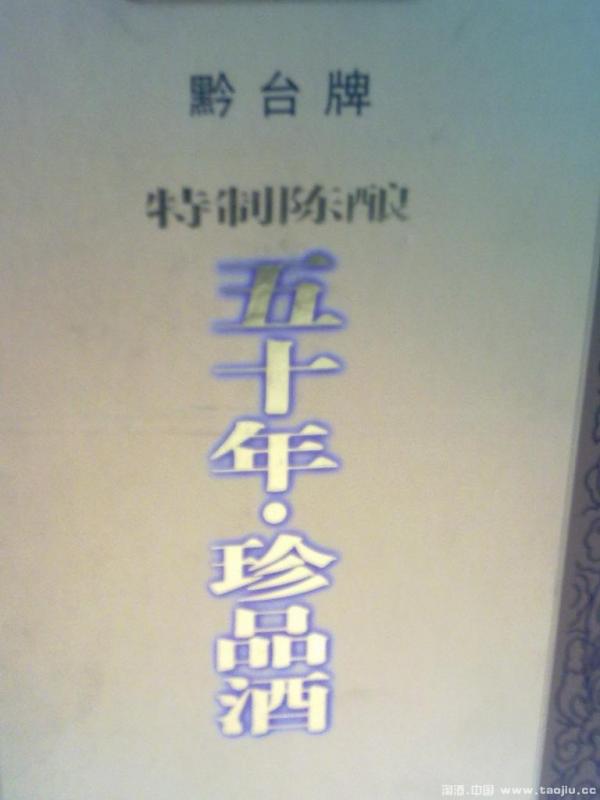 黔台牌
特制陈酿
五十年·珍品酒
淘酒.中国 www.taojiu.cc